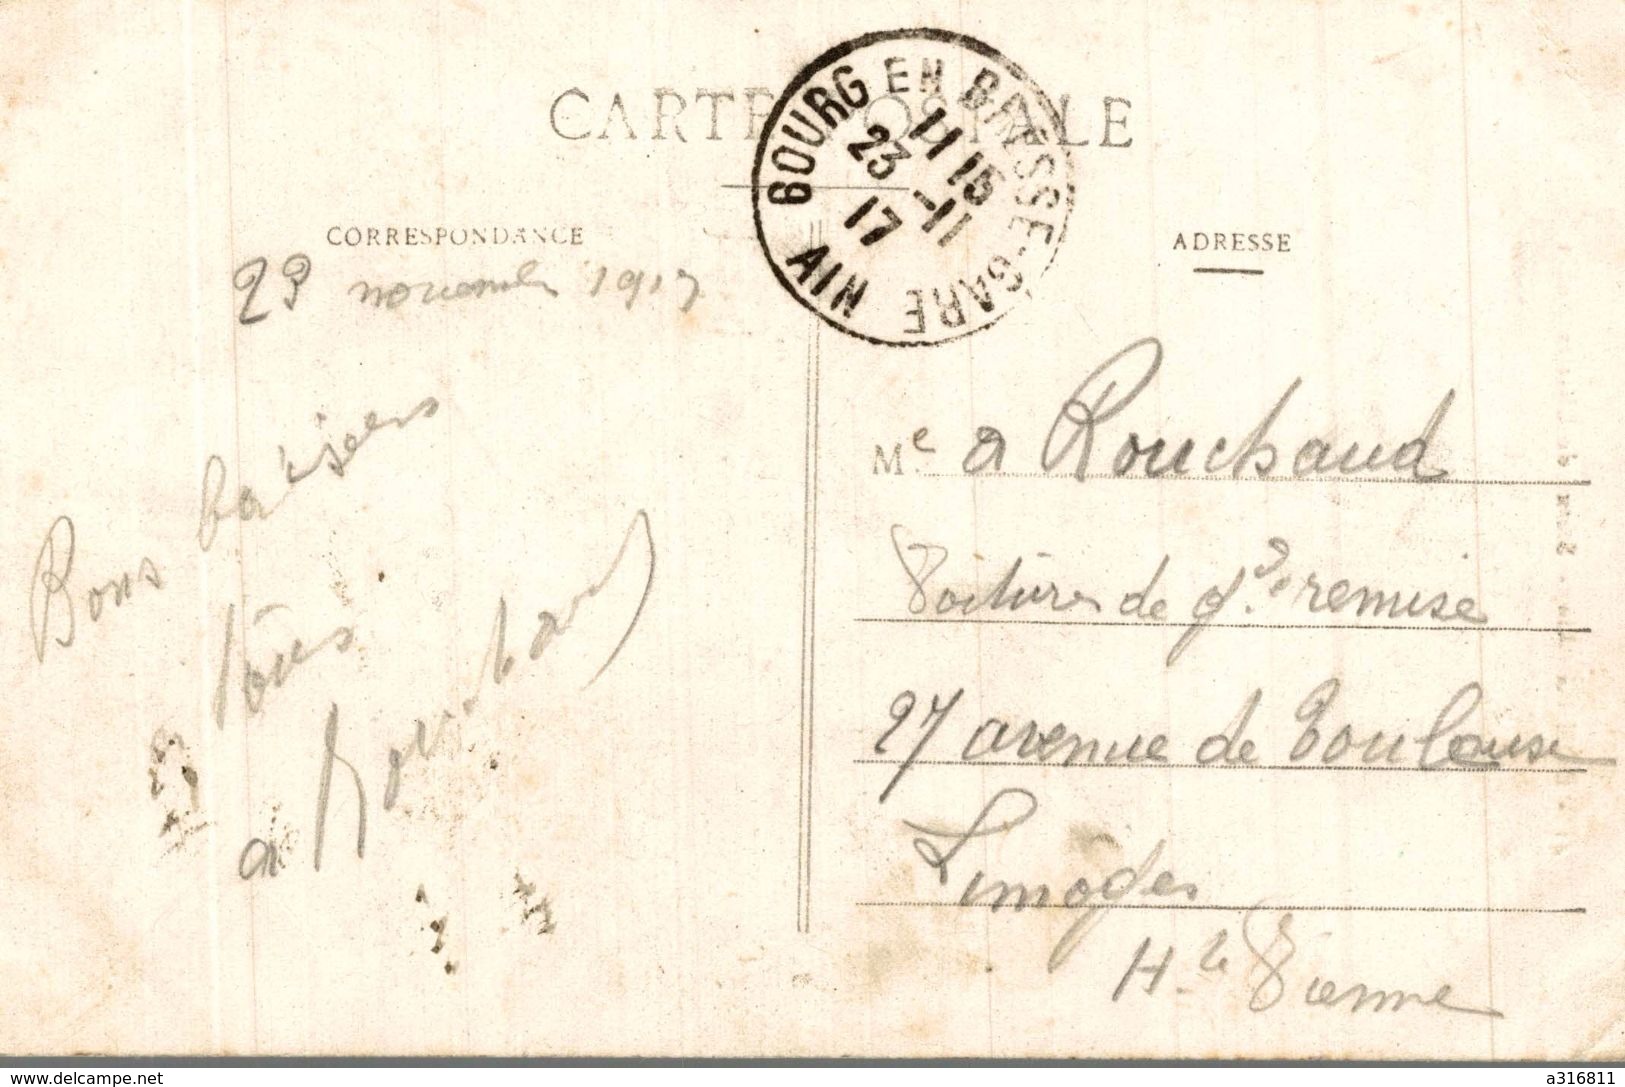 CARTE POSTALE
BOURG EN BRESSE-GARE
11 15
23 -11
17
AIN
CORRESPONDANCE
ADRESSE
23 novembre 1917
Bons baisers
a tous
a Rouchaud
Me a Rouchaud
Voitures de gde remise
27 avenue de Toulouse
Limoges
Hte Vienne
www.delcampe.net
a316811